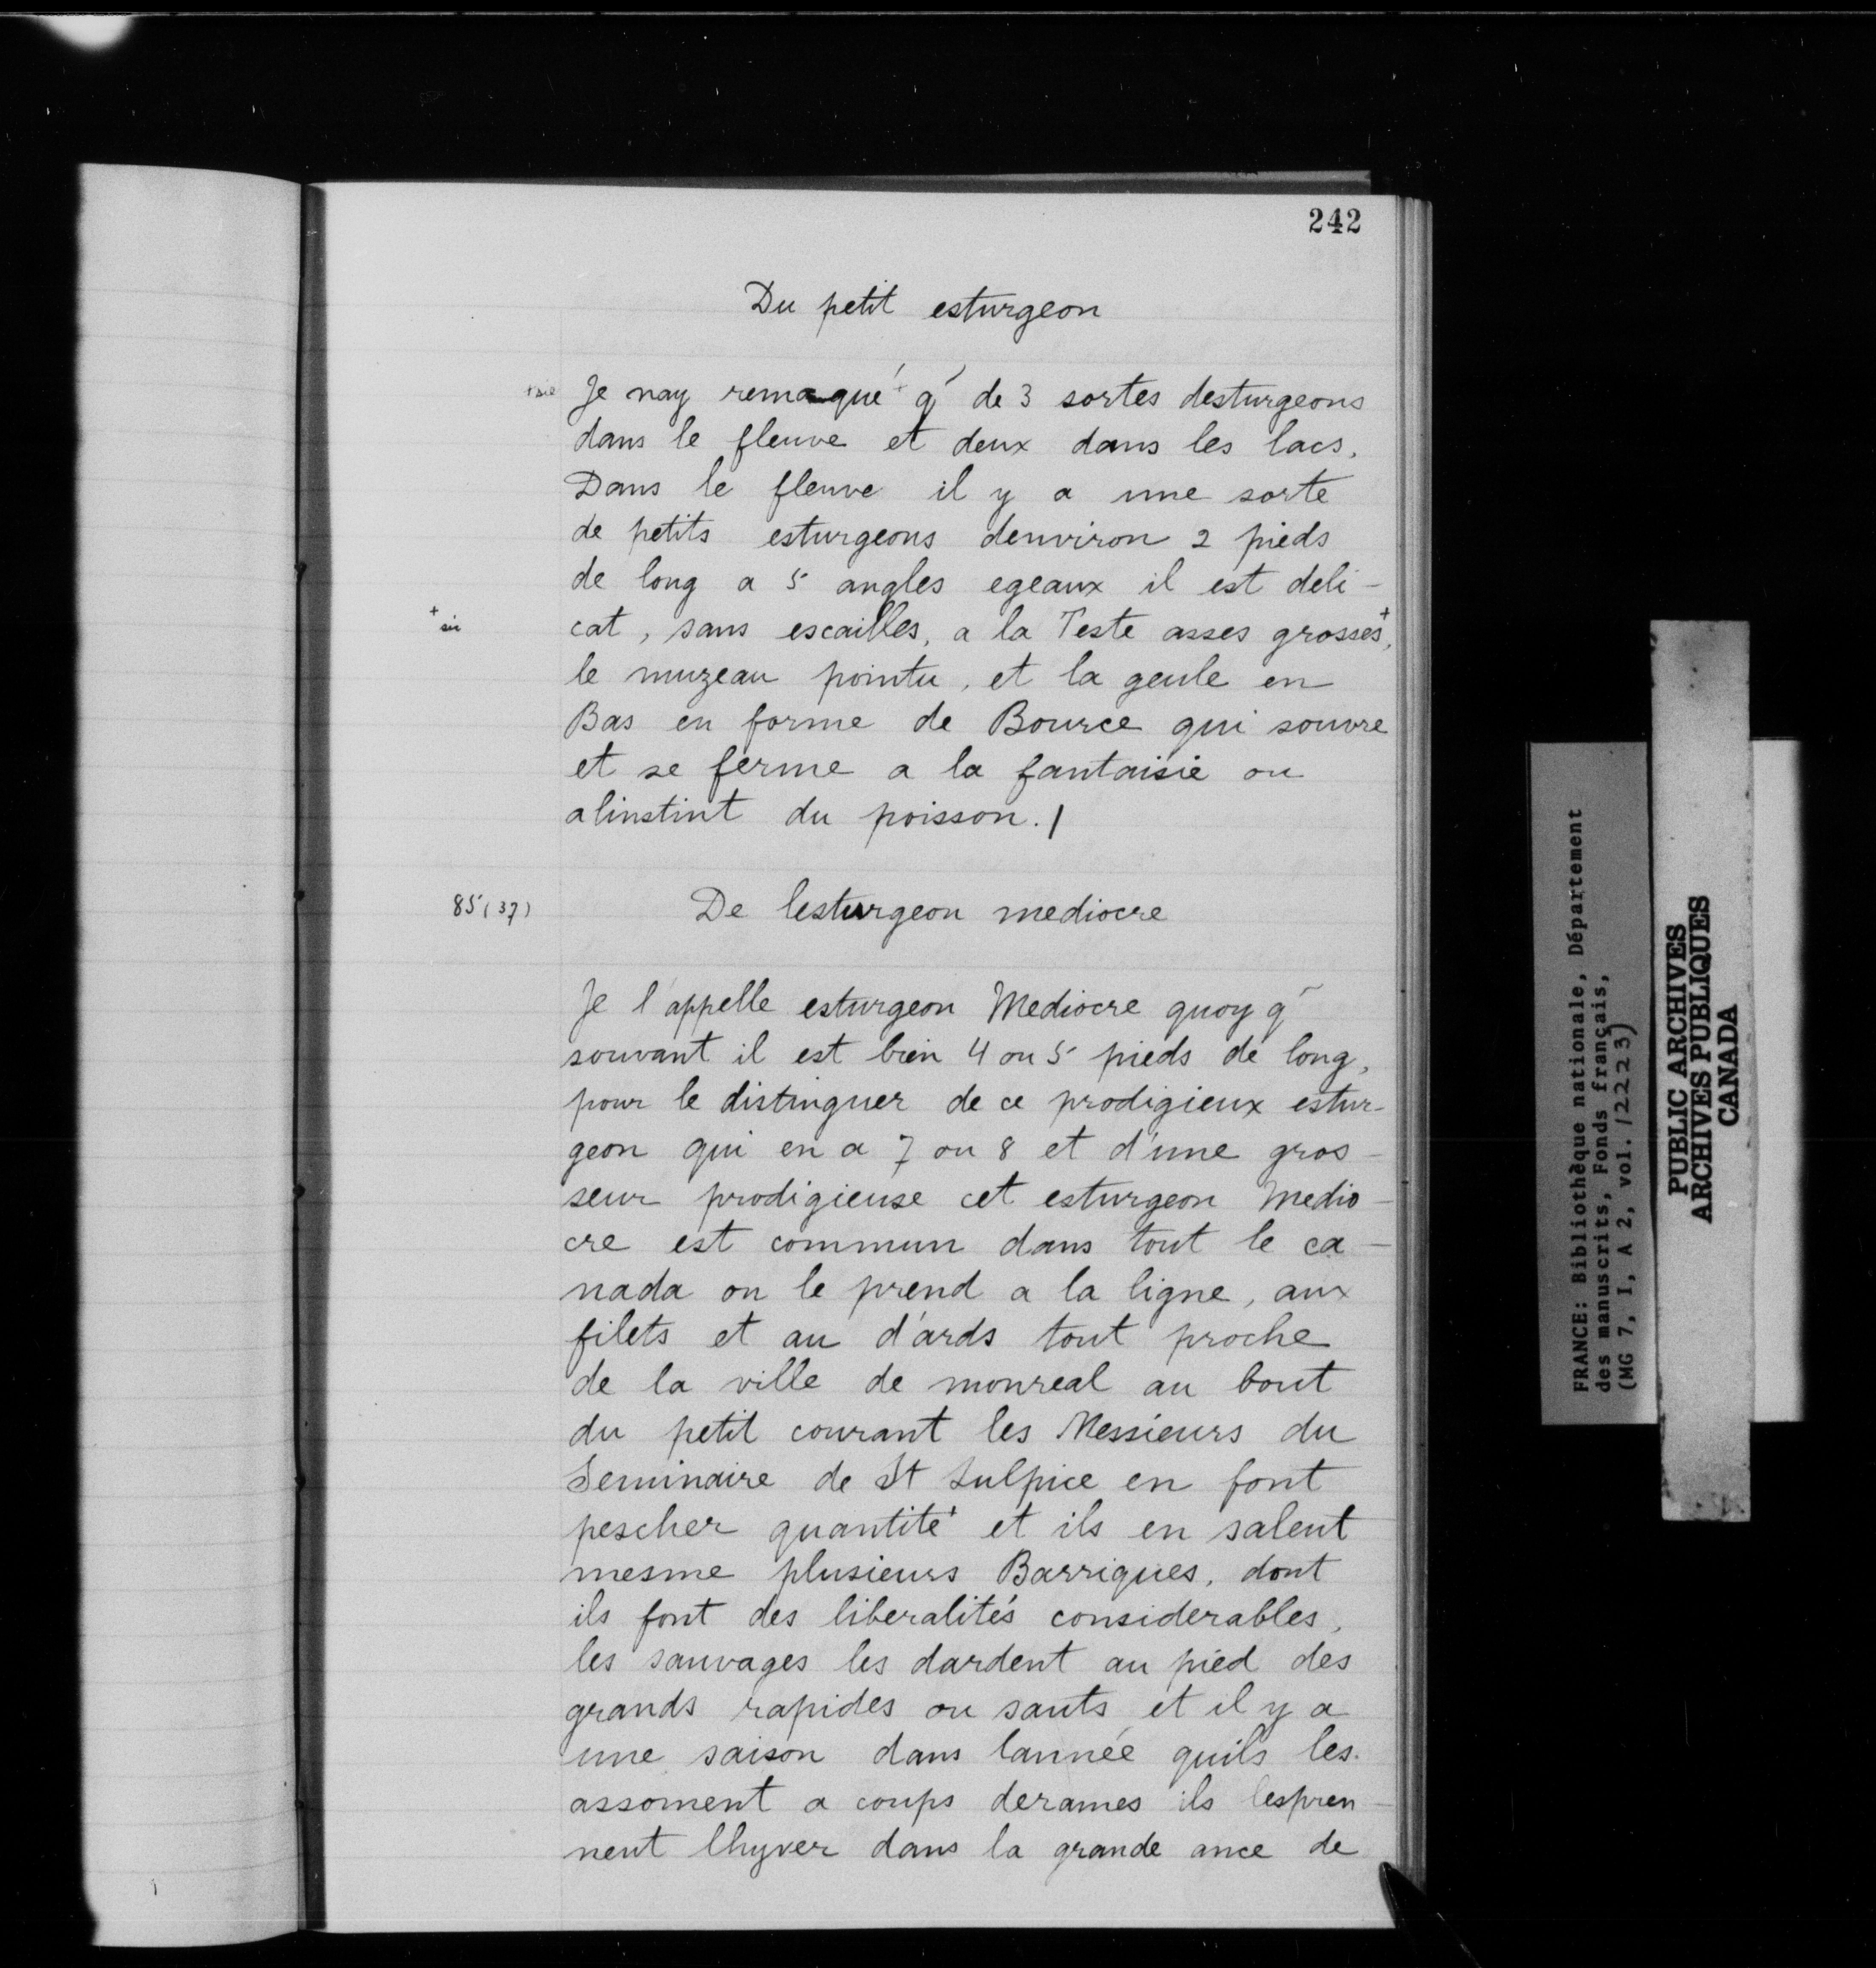 242
Du petit esturgeon
+ sic
Je nay remaqué + q̃ de 3 sortes desturgeons
dans le fleuve et deux dans les lacs.
Dans le fleuve il y a une sorte
de petits esturgeons denviron 2 pieds
de long a 5 angles egeaux il est deli-
+ sic
cat, sans escailles, a la Teste asses grosses +,
le muzeau pointu, et la geule en
Bas en forme de Bource qui souvre
et se ferme a la fantaisie ou
alinstint du poisson. /
85 (37)
De lesturgeon mediocre
Je l'appelle esturgeon Mediocre quoy q̃
souvant il est bien 4 ou 5 pieds de long,
pour le distinguer de ce prodigieux estur-
geon qui en a 7 ou 8 et d'une gros-
seur prodigieuse cet esturgeon Medio-
cre est commun dans tout le ca-
nada on le prend a la ligne, aux
filets et au d'ards tout proche
de la ville de monreal au bout
du petit courant les Messieurs du
Seminaire de St Sulpice en font
pescher quantité et ils en salent
mesme plusieurs Barriques, dont
ils font des liberalités considerables,
les sauvages les dardent au pied des
grands rapides ou sauts et il y a
une saison dans lannée quils les
assoment a coups derames ils lespren-
nent lhyver dans la grande ance de
FRANCE: Bibliothèque nationale, Département
des manuscrits, Fonds français,
(MG 7, I, A 2, vol. 12223)
PUBLIC ARCHIVES
ARCHIVES PUBLIQUES
CANADA